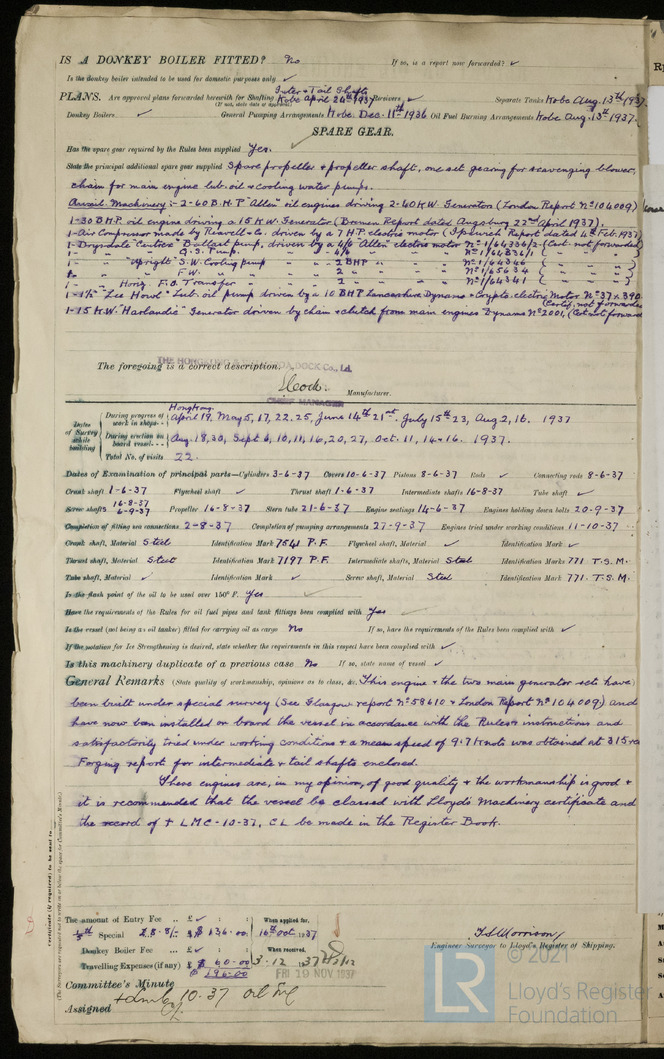 IS A DONKEY BOILER FITTED? No If so, is a report now forwarded? ✓
Is the donkey boiler intended to be used for domestic purposes only ✓
Inter & Tail Shafts
PLANS. Are approved plans forwarded herewith for Shafting Kobe April 26th 1937 Receivers ✓ Separate Tanks Kobe Aug. 13th 1937.
(If not, state date of approval)
Donkey Boilers ✓ General Pumping Arrangements Kobe. Dec. 11th 1936 Oil Fuel Burning Arrangements Kobe Aug. 13th 1937.
SPARE GEAR.
Has the spare gear required by the Rules been supplied Yes.
State the principal additional spare gear supplied Spare propeller & propeller shaft, one set gearing for scavenging blower,
chain for main engine lub. oil & cooling water pumps.
Auxil. Machinery :- 2-60 B.H.P "Allen" oil engines driving 2-40 K.W. Generators (London Report No 104009)
1-30 B.H.P. oil engine driving a 15 K.W. Generator (Bremen Report dated Augsburg 22nd April 1937).
1-Air Compressor made by Reavell & Co. driven by a 7 H.P electric motor (Ipswich Report dated 4th Feb. 1937)
1-Drysdale "Centrex" Ballast pump, driven by a 4/6 "Allen" electric motor No 1/64336/2 (Cert. not forwarded)
1- " " G.S. Pump. " " 4/6 " " No 1/64336/1 ( " " )
1- " "Upright" S.W. Cooling pump " " 2 BHP " " No 1/64346 ( " " )
1- " " F.W. " " " 2 " " No 1/65634 ( " " )
1- " Horiz. F.O. Transfer " " 1 " " No 1/64341 ( " " )
1-1½" "Lee Howl" Lub. oil pump driven by a 10 BHP Lancashire Dynamo & Crypto. electric motor No 37 x 390
(Certif. not forwarded
1-15 K.W. "Harlandic" Generator driven by chain & clutch from main engines Dynamo No 2001, (Cert not forward
THE HONGKONG & WHAMPOA DOCK Co., Ltd.
The foregoing is a correct description.
Manufacturer.
CHIEF MANAGER
Dates of Survey while building
Hongkong.
During progress of work in shops - - April 19, May 5, 17, 22. 25, June 14th 21st. July 15th 23, Aug 2, 16. 1937
During erection on board vessel - - - Aug. 18, 30, Sept 6, 10, 11, 16, 20, 27, Oct. 11, 14 & 16. 1937.
Total No. of visits 22.
Dates of Examination of principal parts—Cylinders 3-6-37 Covers 10-6-37 Pistons 8-6-37 Rods ✓ Connecting rods 8-6-37
Crank shaft 1-6-37 Flywheel shaft ✓ Thrust shaft 1-6-37 Intermediate shafts 16-8-37 Tube shaft ✓
Screw shafts 16-8-37 6-9-37 Propeller 16-8-37 Stern tube 21-6-37 Engine seatings 14-6-37 Engines holding down bolts 20-9-37
Completion of fitting sea connections 2-8-37 Completion of pumping arrangements 27-9-37 Engines tried under working conditions 11-10-37
Crank shaft, Material Steel Identification Mark 7541 P.F. Flywheel shaft, Material ✓ Identification Mark ✓
Thrust shaft, Material Steel Identification Mark 7197 P.F. Intermediate shafts, Material Steel Identification Marks 771 T.S.M.
Tube shaft, Material ✓ Identification Mark ✓ Screw shaft, Material Steel Identification Mark 771. T.S.M.
Is the flash point of the oil to be used over 150° F. Yes
Have the requirements of the Rules for oil fuel pipes and tank fittings been complied with Yes
Is the vessel (not being an oil tanker) fitted for carrying oil as cargo No If so, have the requirements of the Rules been complied with ✓
If the notation for Ice Strengthening is desired, state whether the requirements in this respect have been complied with ✓
Is this machinery duplicate of a previous case No If so, state name of vessel ✓
General Remarks (State quality of workmanship, opinions as to class, &c. This engine & the two main generator sets have
been built under special survey (See Glasgow report No 58610 & London Report No 104009) and
have now been installed on board the vessel in accordance with the Rules & instructions and
satisfactorily tried under working conditions & a mean speed of 9.7 knots was obtained at 315 re
Forging report for intermediate & tail shafts enclosed.
These engines are, in my opinion, of good quality & the workmanship is good &
it is recommended that the vessel be classed with Lloyd's Machinery certificate and
the record of + LMC-10-37, CL be made in the Register Book.
Certificate (if required) to be sent to
(The Surveyors are requested not to write on or below the space for Committee's Minute.)
The amount of Entry Fee .. £ ✓ : : When applied for,
Special £8.8/- $ 136.00 16th Oct 1937
Donkey Boiler Fee ... £ ✓ : : When received,
Travelling Expenses (if any) £ $ 60.00 3.12.1937
$ 196.00
FRI 19 NOV 1937
T.S. Morrison
Engineer Surveyor to Lloyd's Register of Shipping.
Committee's Minute
Assigned + LMC 10.37 Oil Eng
CL
© 2021
LR
Lloyd's Register
Foundation